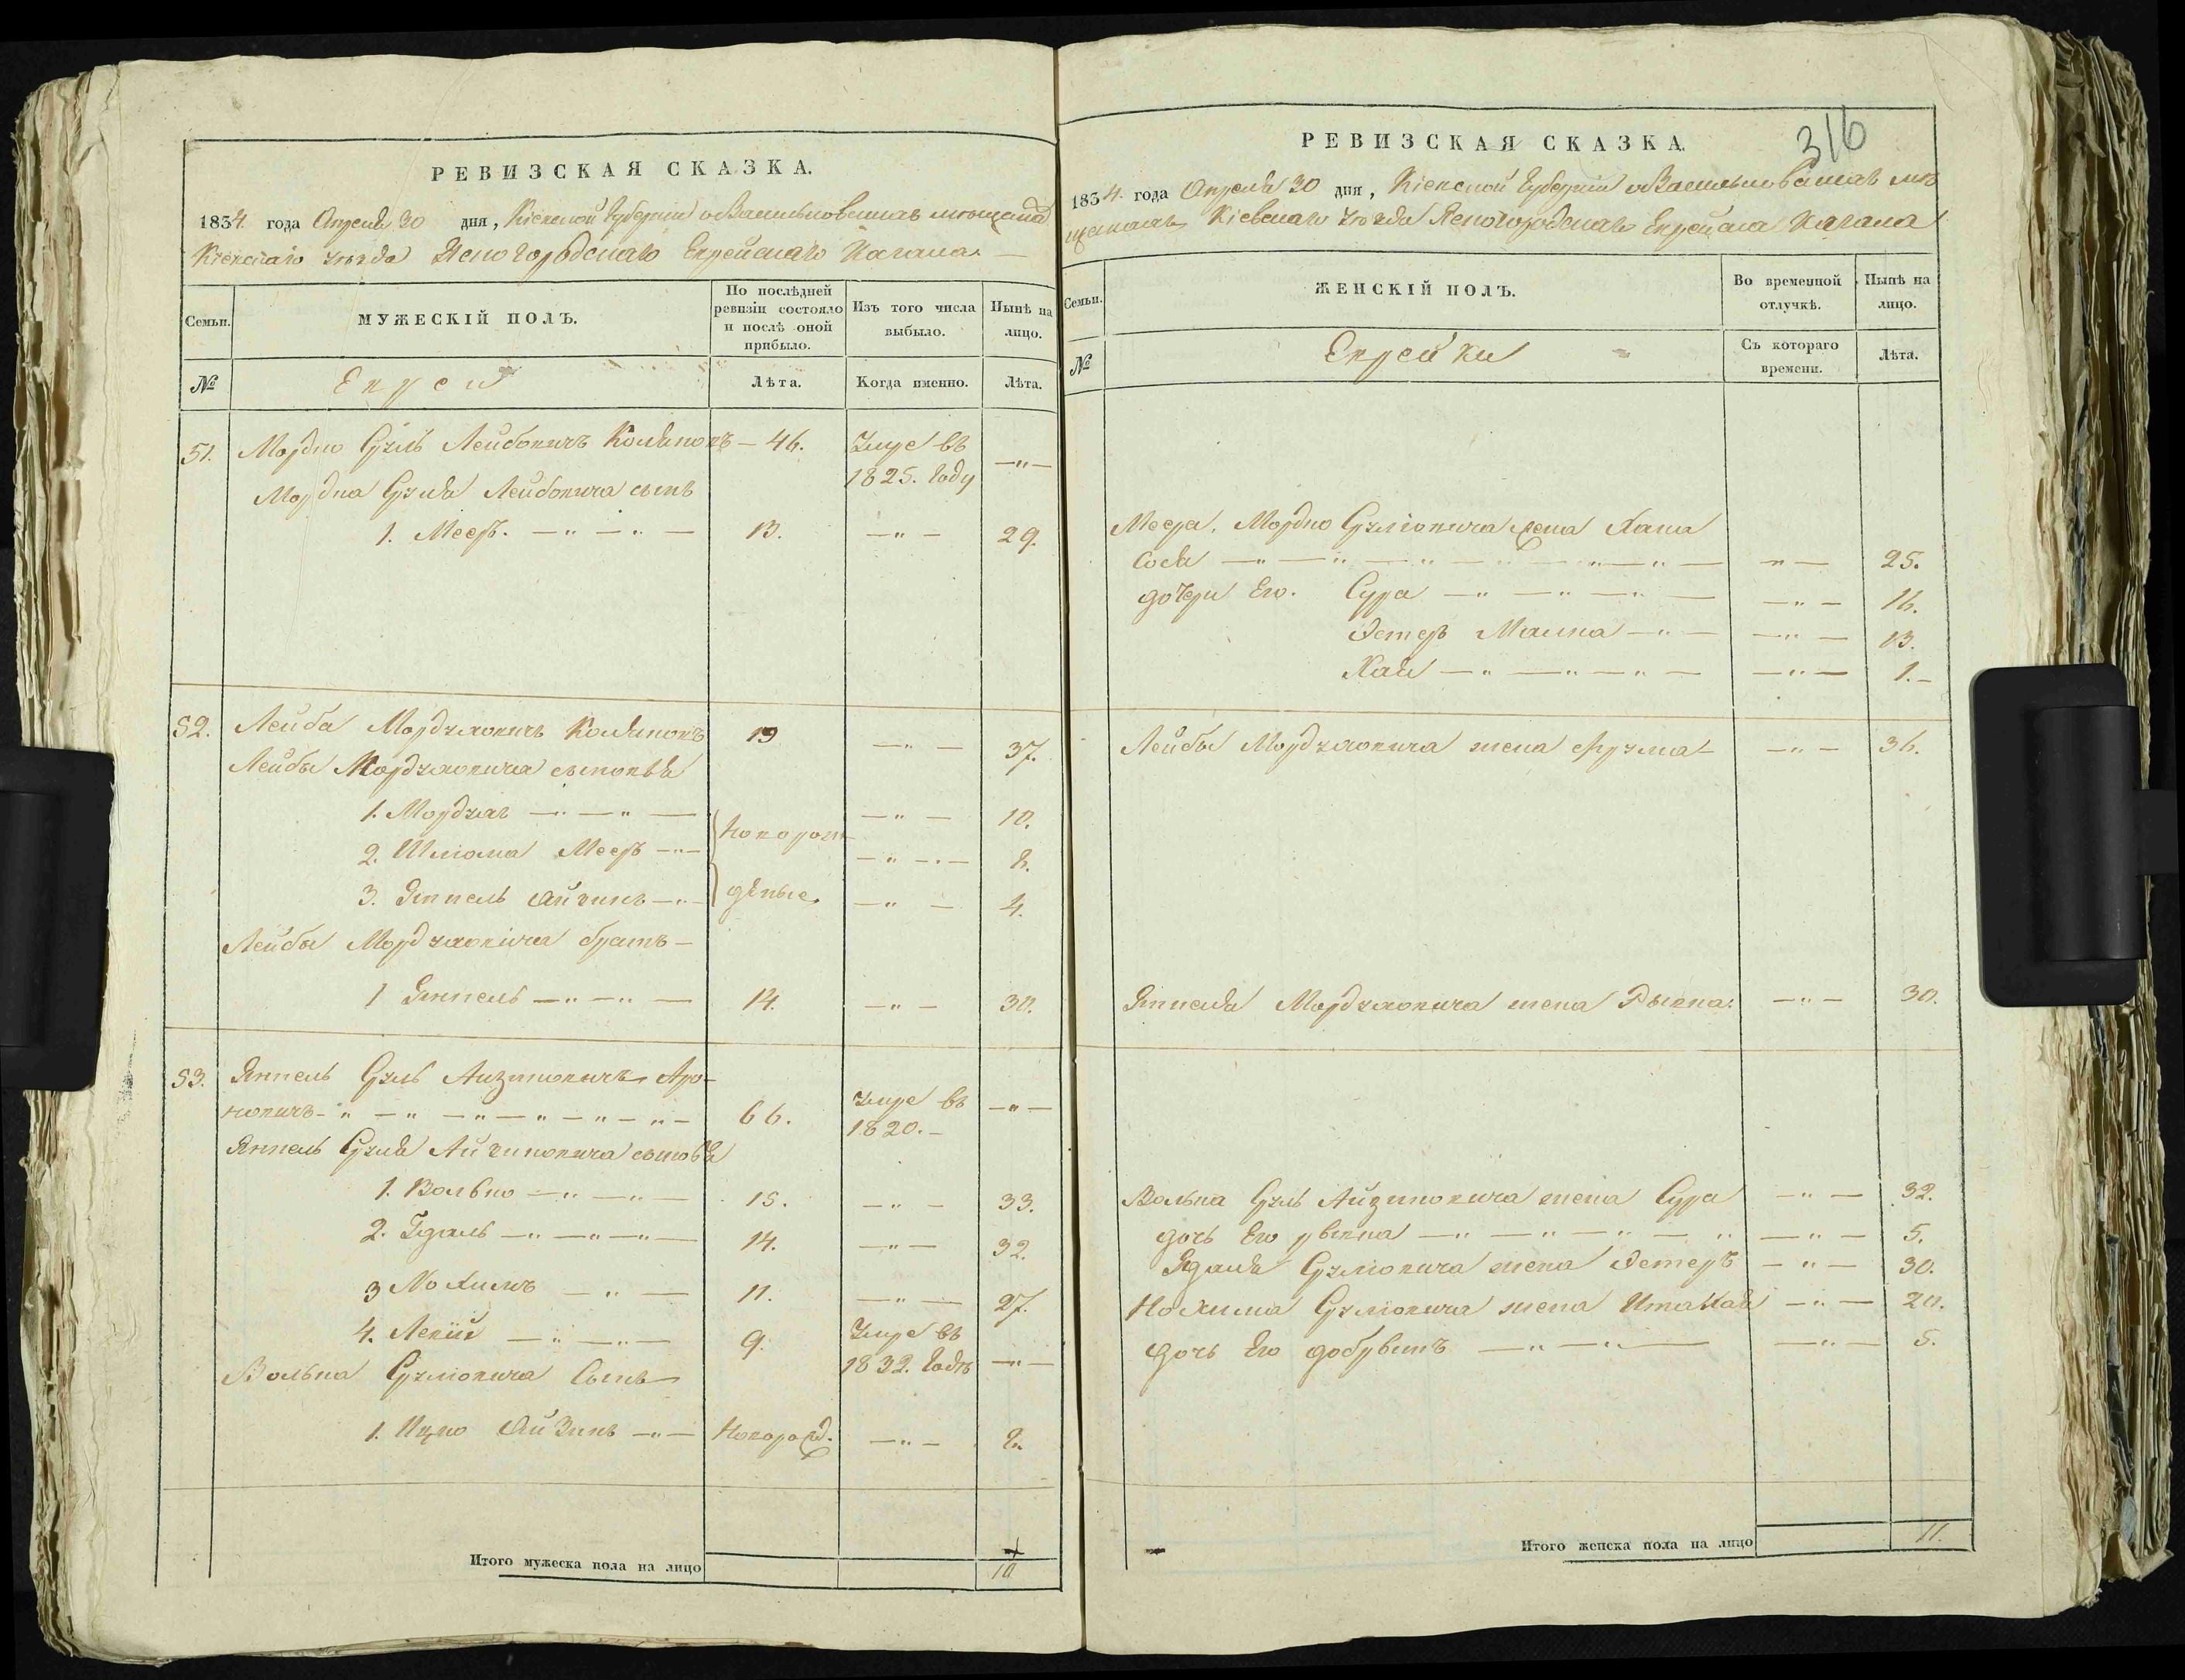 РЕВИЗСКАЯ СКАЗКА.
1834 года Апреля 30 дня, Кіевской Губерніи Васильковскаго
Кіевскаго уѣзда Ясногородскаго Еврейскаго Кагала
Семьи.
МУЖЕСКІЙ ПОЛЪ.
По послѣдней ревизіи состояло и послѣ оной прибыло.
Изъ того числа выбыло.
Нынѣ на лицо.
№
Евреи
Лѣта.
Когда именно.
Лѣта.
51. Мордко Сруль Лейбовичъ 46. Умре въ 1825. году —"—
Мордка Сруля Лейбовича сынъ
1. Мееръ. —"—"— 13. —"— 29.
52. Лейба Мордховичъ 19 —"— 37.
Лейбы Мордховича сыновья
1. Мордхъ —"—"— Новорож —"— 10.
2. Шліома Мееръ —"— —"—"—
3. Янкель Айзикъ —"— дѣные —"— 4.
Лейбы Мордховича братъ —
1 Янкель —"—"— 14. —"— 30.
53. Янкель Сруль Айзиковичъ Аро-
новичъ —"—"—"—"—"— 66. Умре въ 1820. — —"—
Янкель Сруля Айзиковича сыновья
1. Волько —"—"— 15. —"— 33.
2. Гдаль —"—"—"— 14. —"— 32.
3 Нохимъ —"— 11. —"— 27.
4. Левій —"—"— 9. Умре въ 1832. годѣ —"—
Волька Сруліовича Сынъ
1. Ицко Айзикъ —"—Новорожд. —"—
Итого мужеска пола на лицо
10
РЕВИЗСКАЯ СКАЗКА.
316
1834 года Апреля 30 дня, Кіевской Губерніи Васильковскаго
Кіевскаго уѣзда Ясногородскаго Еврейскаго Кагала
Семьи.
ЖЕНСКІЙ ПОЛЪ.
Во временной отлучкѣ.
Нынѣ на лицо.
№
Еврейки
Съ котораго времени.
Лѣта.
Меера Мордко Сруліовича жена Хана
Сося —"—"—"—"—"—"— —"— 25.
дочери Его. Сура —"—"—"— —"— 16.
Этеръ Малка —"— —"— 13.
Хая —"—"—"— —"— 1.—
Лейбы Мордховича жена Фрума —"— 36.
Янкеля Мордховича жена —"— 30.
Волька Сруль Айзиковича жена Сура —"— 32.
дочь Его Ривка —"—"—"—" —"— 5.
Гдаля Сруліовича жена Этеръ —"— 30.
Нохима Сруліовича жена Ита Хая —"— 20.
дочь Его Добришъ —"—"— —"— 5.
Итого женска пола на лицо
11.